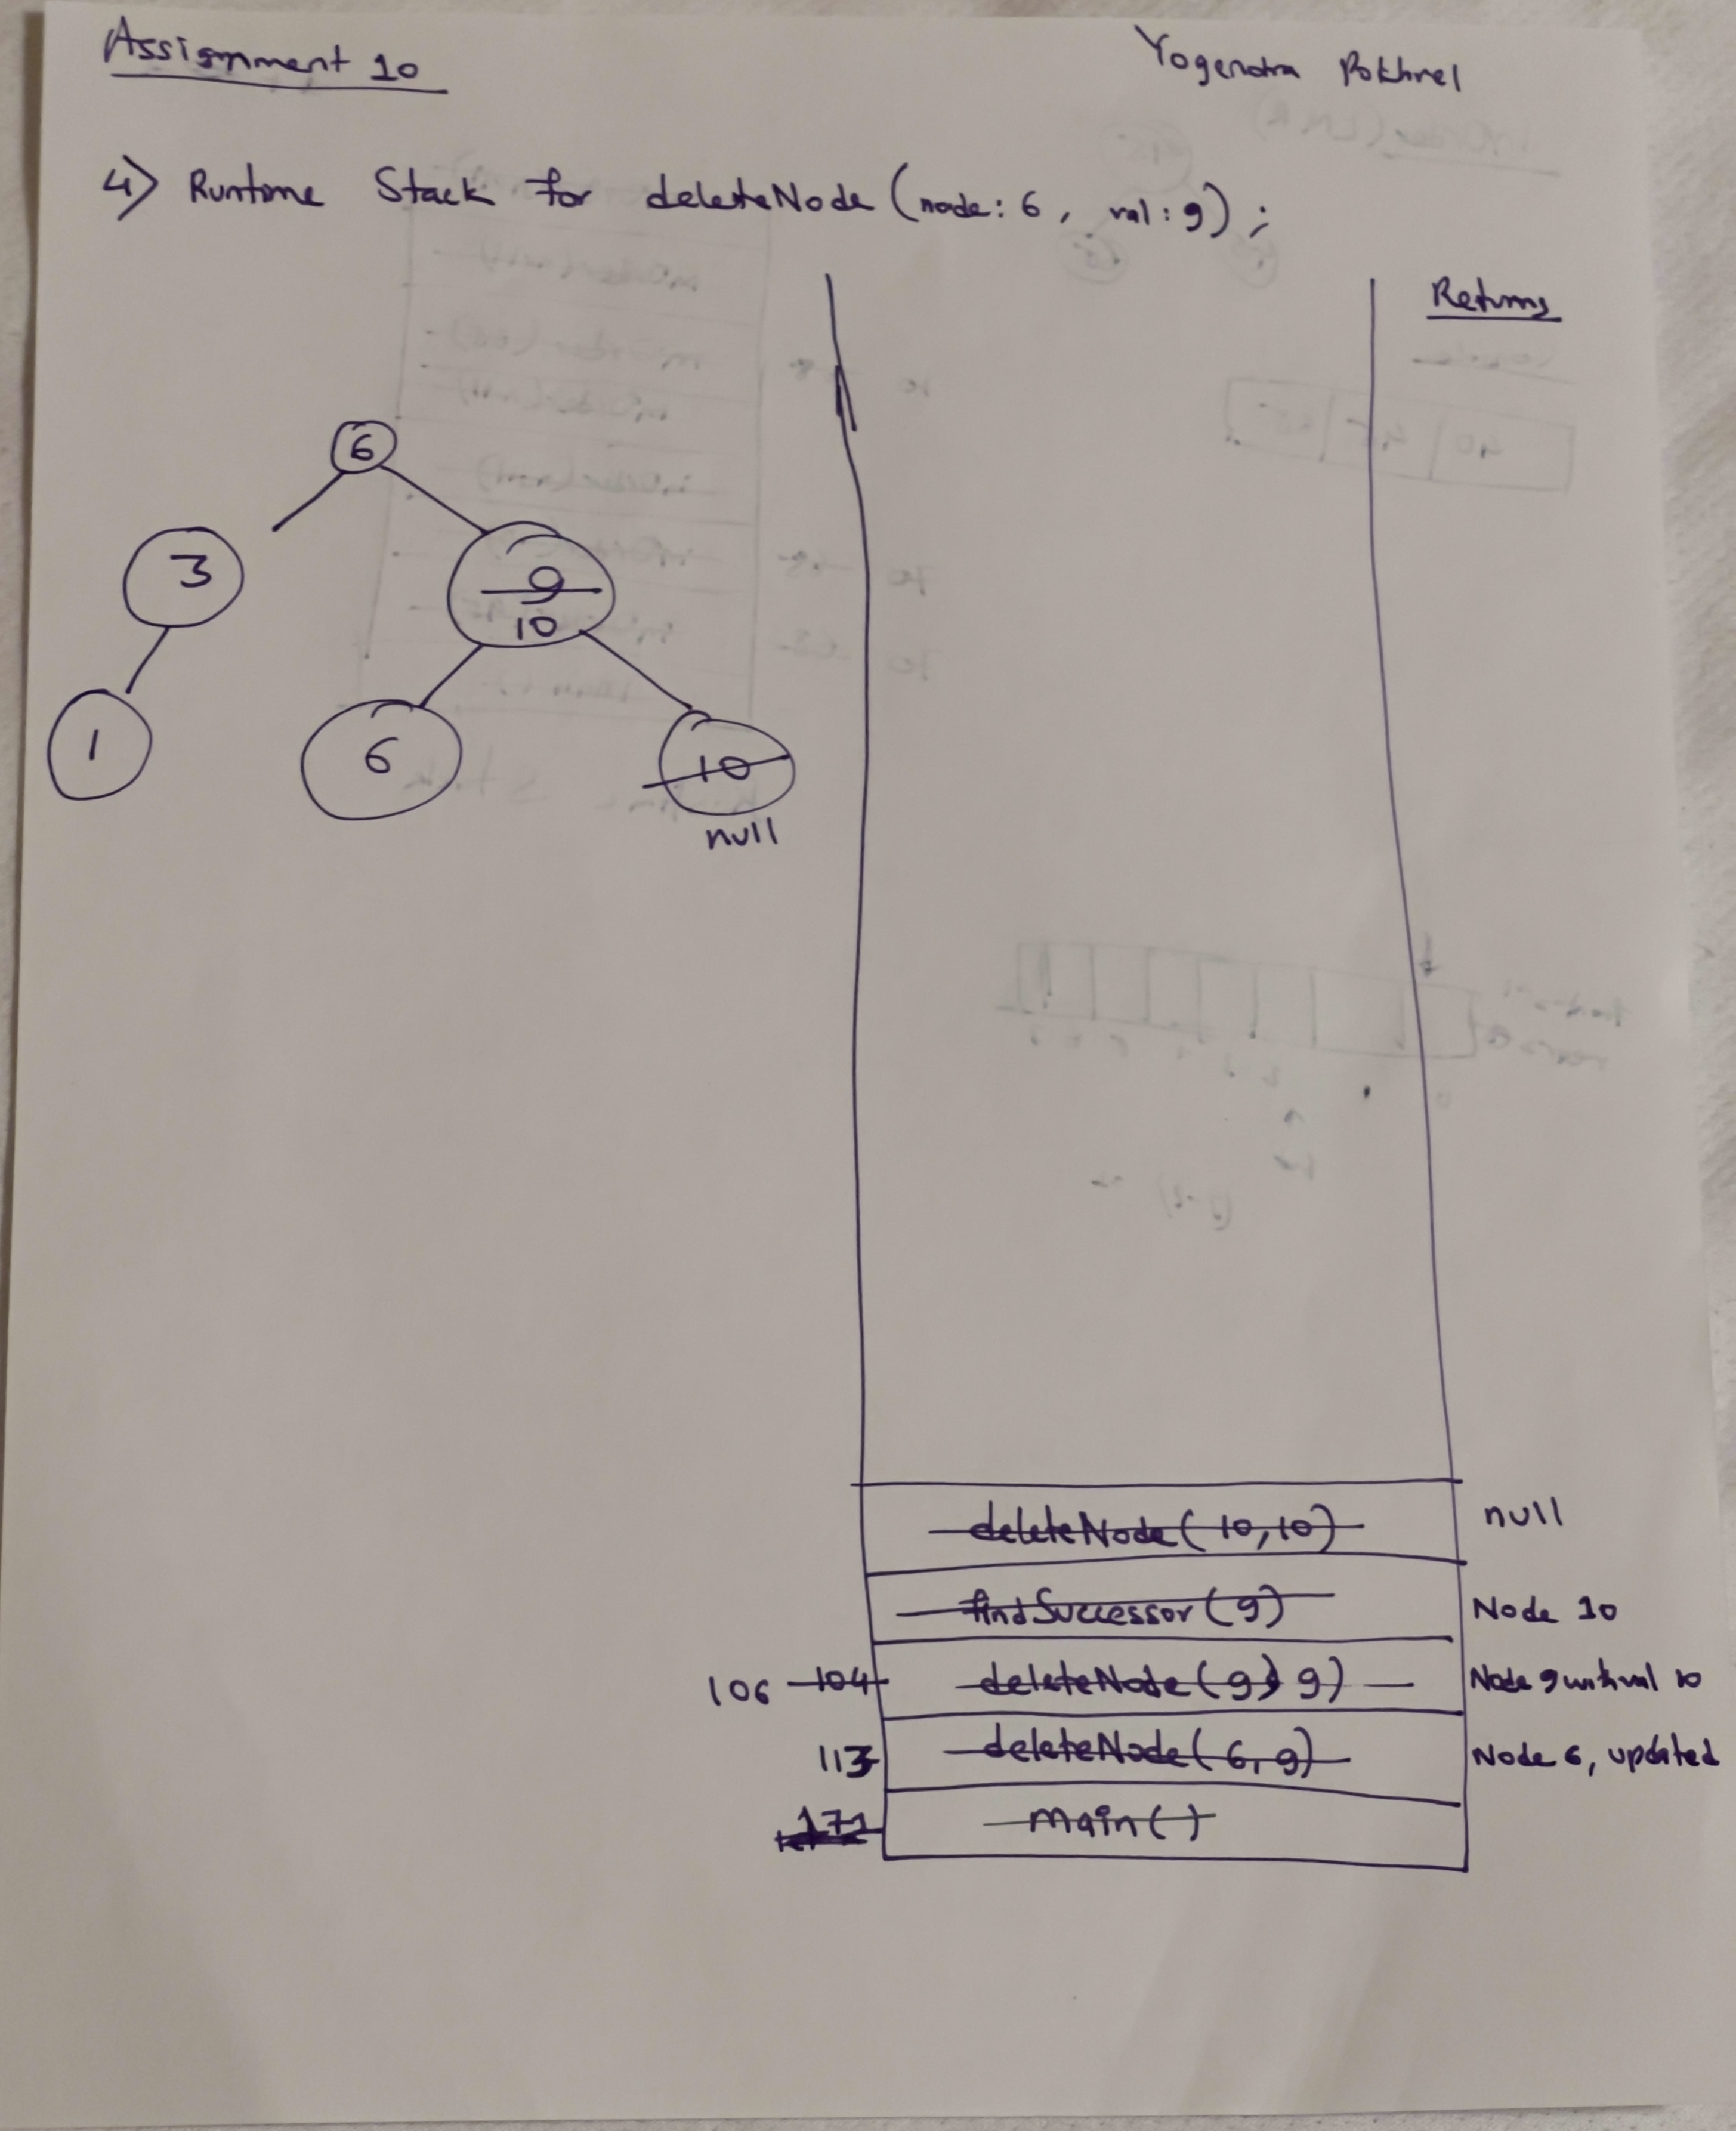 Assignment 10
Yogendra Pokhrel
4) Runtime Stack for deleteNode (node: 6, val: 9);
Returns
6
3
9
10
1
6
10
null
deleteNode(10,10) null
findSuccessor(9) Node 10
106 104 deleteNode(9, 9) Node 9 with val 10
113 deleteNode(6,9) Node 6, updated
171 main()